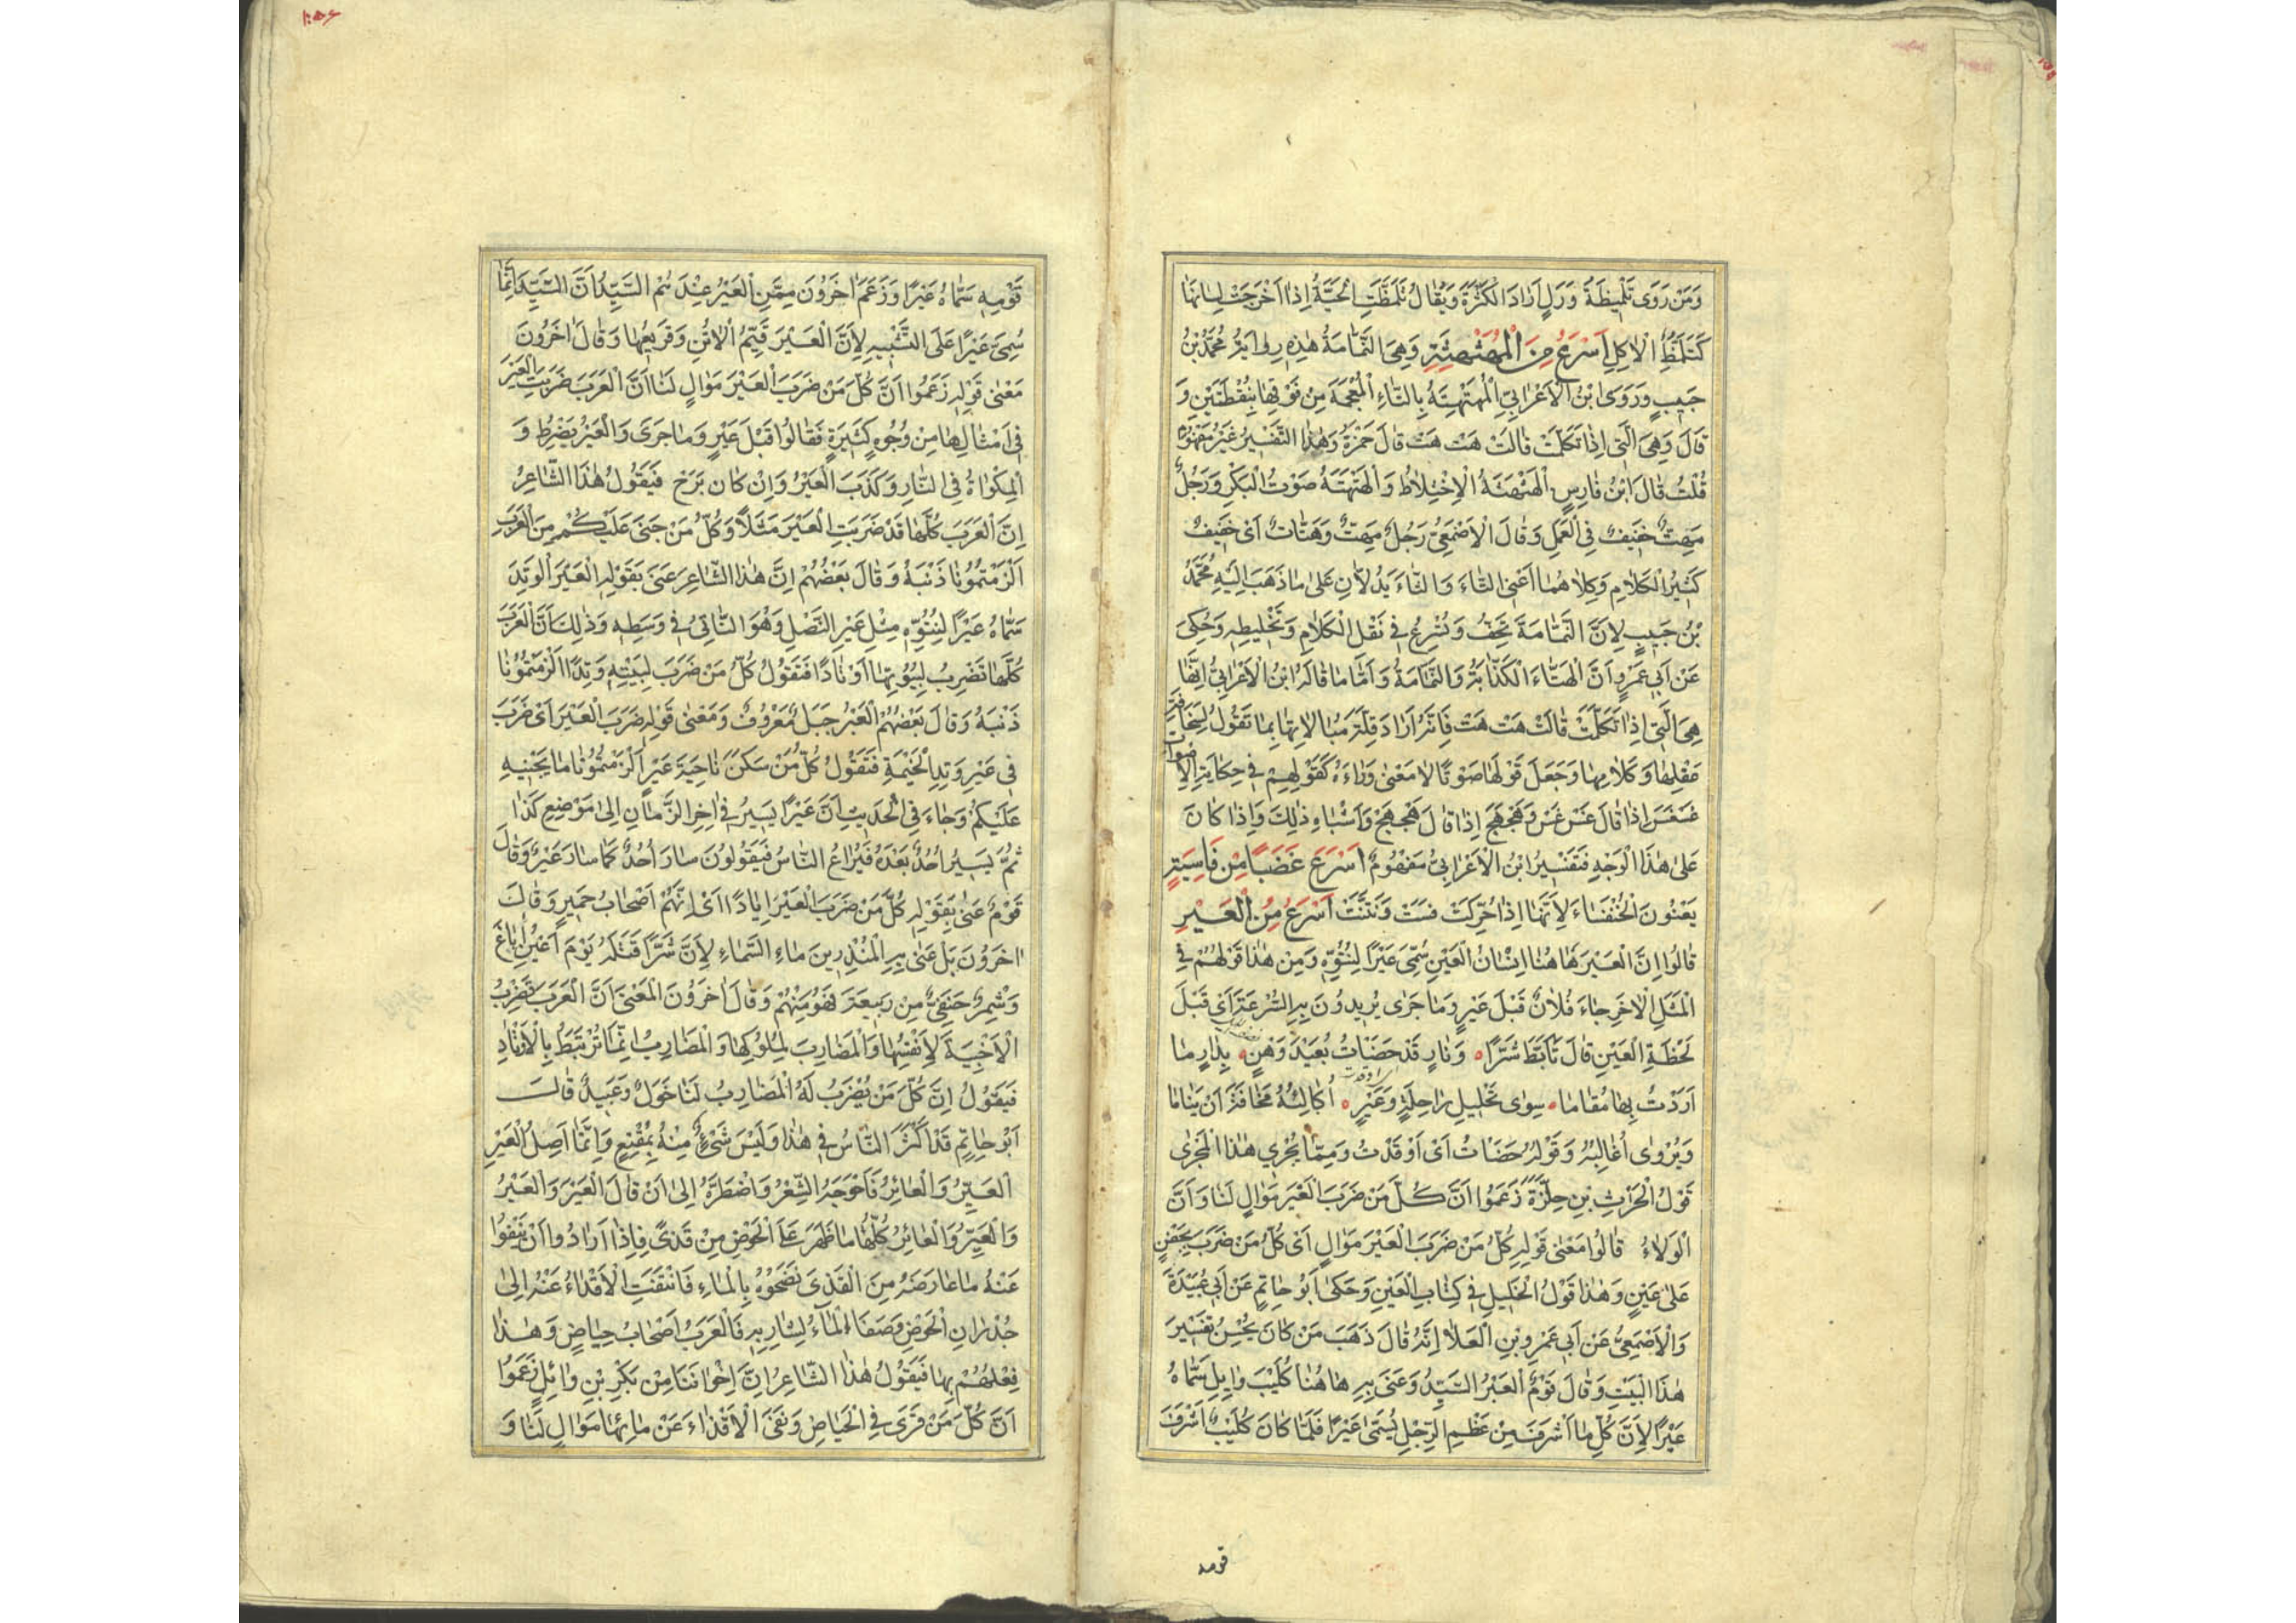 وَمَنْ رَوَى تَلْمِيظَةً وَرَلٍ اَرَادَ الْكَثْرَةَ وَيُقَالُ تَلَمَّظَتِ الْحَيَّةُ اِذَا اَخْرَجَتْ لِسَانَهَا
كَتَلَمُّظِ الْاٰكِلِ اَسْرَعُ مِنَ الْمُهَثْهِثَةِ وَهِيَ النَّمَّامَةُ هٰذِهِ رِوَايَةُ مُحَمَّدُ بْنُ
حَبِيبٍ وَرَوَى ابْنُ الْاَعْرَابِيِّ الْمُهَتْهِتَةُ بِالتَّاءِ الْمُعْجَمَةِ مِنْ فَوْقِهَا بِنُقْطَتَيْنِ وَ
قَالَ وَهِيَ الَّتِي اِذَا تَكَلَّمَتْ قَالَتْ هَتْ هَتْ قَالَ حَمْزَةُ وَهٰذَا التَّفْسِيرُ غَيْرُ مَفْهُومٍ
قُلْتُ قَالَ ابْنُ فَارِسٍ الْهَثْهَثَةُ الْاِخْتِلَاطُ وَالْهَتْهَتَةُ صَوْتُ الْبَكْرِ وَرَجُلٌ
مِهَتٌّ خَفِيفٌ فِي الْعَمَلِ وَقَالَ الْاَصْمَعِيُّ رَجُلٌ مِهَتٌّ وَهَتَّاتٌ اَيْ خَفِيفٌ
كَثِيرُ الْكَلَامِ وَكِلَاهُمَا اَعْنِي الثَّاءَ وَالتَّاءَ يَدُلَّانِ عَلٰى مَا ذَهَبَ اِلَيْهِ مُحَمَّدُ
بْنُ حَبِيبٍ لِاَنَّ النَّمَّامَةَ تَخِفُّ وَتُسْرِعُ فِي نَقْلِ الْكَلَامِ وَتَخْلِيطِهِ وَحُكِيَ
عَنْ اَبِي عَمْرٍو اَنَّ الْهَتَّاءَ الْكَذَّابَةُ وَالنَّمَّامَةُ وَاَمَّا مَا قَالَهُ ابْنُ الْاَعْرَابِيِّ اِنَّهَا
هِيَ الَّتِي اِذَا تَكَلَّمَتْ قَالَتْ هَتْ هَتْ فَاِنَّهُ اَرَادَ قِلَّةَ مُبَالَاتِهَا بِمَا تَقُولُ لِسَخَافَةِ
عَقْلِهَا وَكَلَامِهَا وَجَعَلَ قَوْلَهَا صَوْتًا لَا مَعْنٰى وَرَاءَهُ كَقَوْلِهِمْ فِي حِكَايَةِ الْاَصْوَاتِ
غَسْغَسَ اِذَا قَالَ غَسْ غَسْ وَهَجْهَجَ اِذَا قَالَ هَجْ هَجْ وَاَشْبَاهِ ذٰلِكَ وَاِذَا كَانَ
عَلٰى هٰذَا الْوَجْهِ فَتَفْسِيرُ ابْنُ الْاَعْرَابِيِّ مَفْهُومٌ اَسْرَعُ غَضَبًا مِنْ فَاسِيَةٍ
يَعْنُونَ الْخُنْفَسَاءَ لِاَنَّهَا اِذَا حُرِّكَتْ فَسَتْ وَنَتَّنَتْ اَسْرَعُ مِنَ الْعَيْرِ
قَالُوا اِنَّ الْعَيْرَ هَاهُنَا اِنْسَانُ الْعَيْنِ سُمِّيَ عَيْرًا لِنُتُوِّهِ وَمِنْ هٰذَا قَوْلُهُمْ فِي
الْمَثَلِ الْاٰخَرِ جَاءَ فُلَانٌ قَبْلَ عَيْرٍ وَمَا جَرٰى يُرِيدُونَ بِهِ السُّرْعَةَ اَيْ قَبْلَ
لَحْظَةِ الْعَيْنِ قَالَ تَاَبَّطَ شَرًّا وَنَارٍ قَدْ حَضَأْتُ بُعَيْدَ وَهْنٍ بِدَارٍ مَا
اَرَدْتُ بِهَا مُقَامَا سِوٰى تَحْلِيلِ رَاحِلَةٍ وَعَيْرٍ اُكَالِئُهُ مَخَافَةَ اَنْ يَنَامَا
وَيُرْوٰى اُغَالِبُهُ وَقَوْلُهُ حَضَأْتُ اَيْ اَوْقَدْتُ وَمِمَّا يَجْرِي هٰذَا الْمَجْرٰى
قَوْلُ الْحَرِثِ بْنِ حِلِّزَةَ زَعَمُوا اَنَّ كُلَّ مَنْ ضَرَبَ الْعَيْرَ مَوَالٍ لَنَا وَاَنَّ
الْوَلَاءُ قَالُوا مَعْنٰى قَوْلِهِ كُلُّ مَنْ ضَرَبَ الْعَيْرَ مَوَالٍ اَيْ كُلُّ مَنْ ضَرَبَ بِجَفْنٍ
عَلٰى عَيْنٍ وَهٰذَا قَوْلُ الْخَلِيلِ فِي كِتَابِ الْعَيْنِ وَحَكٰى اَبُو حَاتِمٍ عَنْ اَبِي عُبَيْدَةَ
وَالْاَصْمَعِيُّ عَنْ اَبِي عَمْرِو بْنِ الْعَلَا اِنَّهُ قَالَ ذَهَبَ مَنْ كَانَ يُحْسِنُ تَفْسِيرَ
هٰذَا الْبَيْتِ وَقَالَ قَوْمٌ الْعَيْرُ السَّيِّدُ وَعَنٰى بِهِ هَاهُنَا كُلَيْبَ وَايِلٍ سَمَّاهُ
عَيْرًا لِاَنَّ كُلَّ مَا اَشْرَفَ مِنْ عَظْمِ الرِّجْلِ يُسَمّٰى عَيْرًا فَلَمَّا كَانَ كُلَيْبٌ اَشْرَفَ
قومه
قَوْمِهِ سَمَّاهُ عَيْرًا وَزَعَمَ اٰخَرُونَ مِمَّنِ الْعَيْرُ عِنْدَهُمُ السَّيِّدُ اَنَّ السَّيِّدَ اِنَّمَا
سُمِّيَ عَيْرًا عَلَى التَّشْبِيهِ لِاَنَّ الْعَيْرَ قَيِّمُ الْاُتُنِ وَقَرِيعُهَا وَقَالَ اٰخَرُونَ
مَعْنٰى قَوْلِهِ زَعَمُوا اَنَّ كُلَّ مَنْ ضَرَبَ الْعَيْرَ مَوَالٍ لَنَا اَنَّ الْعَرَبَ ضَرَبَتِ الْعَيْرَ
فِي اَمْثَالِهَا مِنْ وُجُوهٍ كَثِيرَةٍ فَقَالُوا قَبْلَ عَيْرٍ وَمَا جَرَى وَالْعَيْرُ يَضْرِطُ وَ
الْمِكْوَاةُ فِي النَّارِ وَكَذَبَ الْعَيْرُ وَاِنْ كَانَ بَرَحَ فَيَقُولُ هٰذَا الشَّاعِرُ
اِنَّ الْعَرَبَ كُلَّهَا قَدْ ضَرَبَتِ الْعَيْرَ مَثَلًا وَكُلُّ مَنْ جَنَى عَلَيْكُمْ مِنَ الْعَرَبِ
اَلْزَمْتُمُونَا ذَنْبَهُ وَقَالَ بَعْضُهُمْ اِنَّ هٰذَا الشَّاعِرَ عَنَى بِقَوْلِهِ الْعَيْرَ الْوَتِدَ
سَمَّاهُ عَيْرًا لِنُتُوِّهِ مِثْلِ عَيْرِ النَّصْلِ وَهُوَ النَّاتِئُ فِي وَسَطِهِ وَذٰلِكَ اَنَّ الْعَرَبَ
كُلَّهَا تَضْرِبُ لِبُيُوتِهَا اَوْتَادًا فَتَقُولُ كُلُّ مَنْ ضَرَبَ لِبَيْتِهِ وَتِدًا اَلْزَمْتُمُونَا
ذَنْبَهُ وَقَالَ بَعْضُهُمْ الْعَيْرُ جَبَلٌ مَعْرُوفٌ وَمَعْنٰى قَوْلِهِ ضَرَبَ الْعَيْرَ اَيْ ضَرَبَ
فِي عَيْرٍ وَتِدِ الْخَيْمَةِ فَتَقُولُ كُلُّ مَنْ سَكَنَ نَاحِيَةَ عَيْرٍ اَلْزَمْتُمُونَا مَا يَجْنِيهِ
عَلَيْكُمْ وَجَاءَ فِي الْحَدِيثِ اَنَّ عَيْرًا يَسِيرُ فِي اٰخِرِ الزَّمَانِ اِلٰى مَوْضِعِ كَذَا
ثُمَّ يَسِيرُ اُحُدٌ بَعْدَهُ فَيُرَاعُ النَّاسُ فَيَقُولُونَ سَارَ اُحُدٌ كَمَا سَارَ عَيْرٌ وَقَالَ
قَوْمٌ عَنٰى بِقَوْلِهِ كُلَّ مَنْ ضَرَبَ الْعَيْرَ اِيَادًا اَيْ اِنَّهُمْ اَصْحَابُ حَمِيرٍ وَقَالَ
اٰخَرُونَ بَلْ عَنٰى بِهِ الْمُنْذِرَ بْنَ مَاءِ السَّمَاءِ لِاَنَّ شَمِرًا قَتَلَهُ يَوْمَ اَعْيُنِ اُبَاغَ
وَشَمِرٌ حَنَفِيٌّ مِنْ رَبِيعَةَ فَهُوَ مِنْهُمْ وَقَالَ اٰخَرُونَ الْمَعْنٰى اَنَّ الْعَرَبَ تَضْرِبُ
الْاَخْبِيَةَ لِاَنْفُسِهَا وَالْمَضَارِبَ لِمُلُوكِهَا وَالْمَضَارِبُ اِنَّمَا تُرْتَبَطُ بِالْاَوْتَادِ
فَيَقُولُ اِنَّ كُلَّ مَنْ يُضْرَبُ لَهُ الْمَضَارِبُ لَنَا خَوَلٌ وَعَبِيدٌ قَالَ
اَبُو حَاتِمٍ قَدْ اَكْثَرَ النَّاسُ فِي هٰذَا وَلَيْسَ شَيْءٌ مِنْهُ بِمُقْنِعٍ وَاِنَّمَا اَصْلُ الْعَيْرِ
الْعَيِّرُ وَالْعَائِرُ فَاَحْوَجَهُ الشِّعْرُ وَاضْطَرَّهُ اِلٰى اَنْ قَالَ الْعَيْرَ وَالْعَيْرُ
وَالْعَيِّرُ وَالْعَائِرُ كُلُّهَا مَا ظَهَرَ عَلَى الْحَوْضِ مِنْ قَذًى فَاِذَا اَرَادُوا اَنْ يَنْفُوا
عَنْهُ مَا عَارَضَهُ مِنَ الْقَذَى نَضَحُوهُ بِالْمَاءِ فَانْتَفَتِ الْاَقْذَاءُ عَنْهُ اِلٰى
جُدْرَانِ الْحَوْضِ وَصَفَا الْمَاءُ لِشَارِبِهِ فَالْعَرَبُ اَصْحَابُ حِيَاضٍ وَهٰذَا
فِعْلُهُمْ بِهَا فَيَقُولُ هٰذَا الشَّاعِرُ اِنَّ اِخْوَانَنَا مِنْ بَكْرِ بْنِ وَائِلٍ زَعَمُوا
اَنَّ كُلَّ مَنْ قَرَى فِي الْحِيَاضِ وَنَفَى الْاَقْذَاءَ عَنْ مَائِهَا مَوَالٍ لَنَا وَ